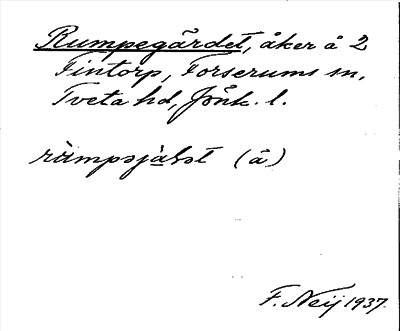 Rumpegärdet, åker å 2
Fintorp, Forserums sn,
Tveta hd, Jönk. l.
(å)
F. Neij 1937.